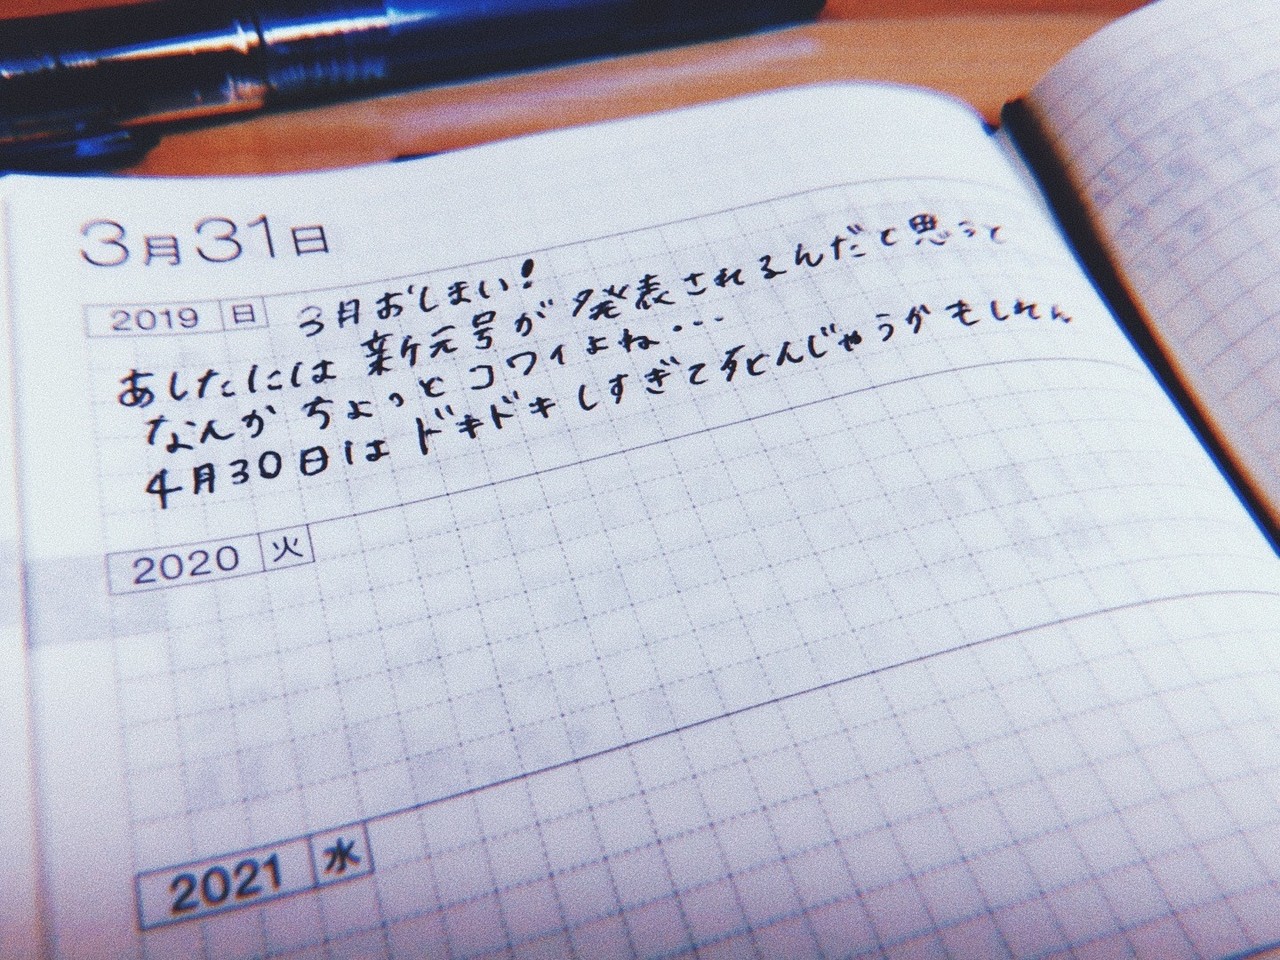 3月31日
2019 日 3月おしまい!
あしたには新元号が発表されるんだと思うと
なんかちょっとコワイよね・・・
4月30日はドキドキしすぎて死んじゃうかもしれん
2020 火
2021 水